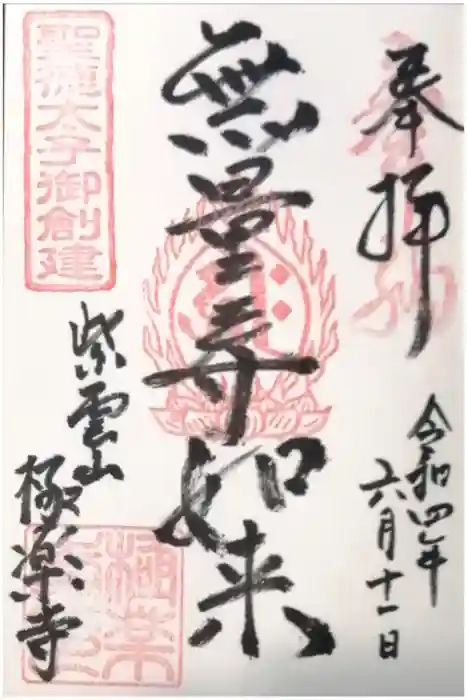 奉拝
令和四年
六月十一日
無量寿如来
聖徳太子御創建
紫雲山
極楽寺